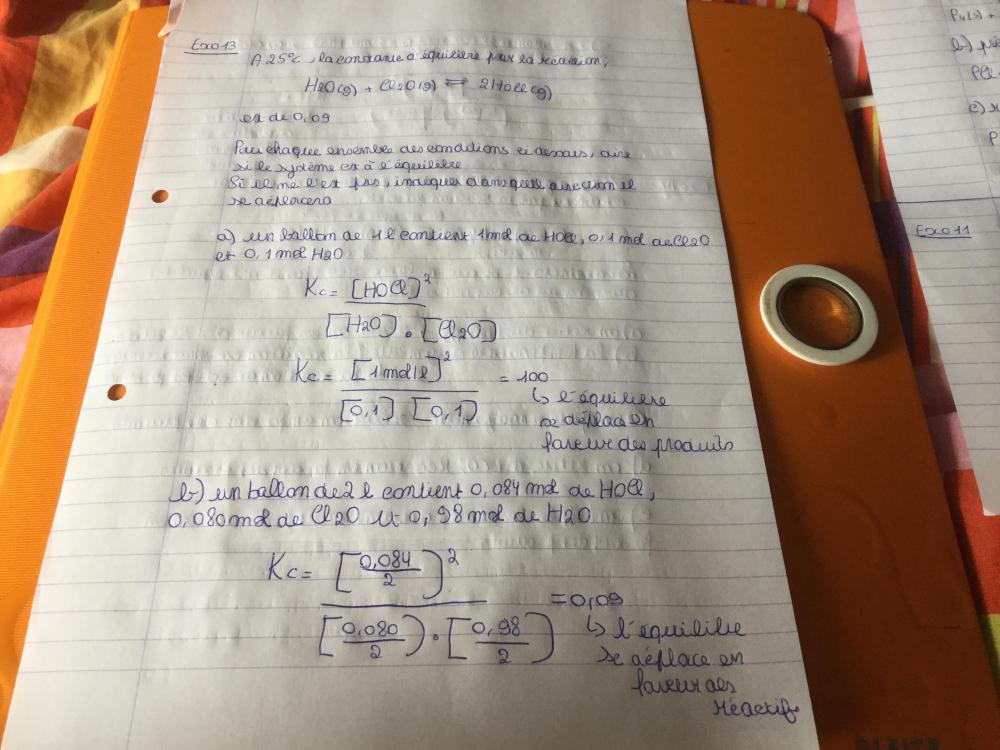 Exo 13
A 25°C, la constance d'équilibre pour la réaction,
H2O(g) + Cl2O(g) ⇌ 2HOCl(g)
est de 0,09
Pour chaque ensemble des conditions ci dessous, dire
si le système est à l'équilibre
Si il ne l'est pas, indiquer dans quelle direction il
se déplacera
a) un ballon de 1l contient 1mol de HOCl, 0,1 mol de Cl2O
et 0,1 mol H2O
Kc = [HOCl]²
[H2O] . [Cl2O]
Kc = [1 mol/l]² = 100
[0,1] . [0,1]
↳ l'équilibre
se déplace en
faveur des produits
b) un ballon de 2 l contient 0,084 mol de HOCl,
0,080 mol de Cl2O et 0,98 mol de H2O
Kc = [0,084/2)² = 0,09
[0,080/2) . [0,98/2)
↳ l'équilibre
se déplace en
faveur des
réactifs
P4(s) +
b)
PCl
c)
P
Exo 11